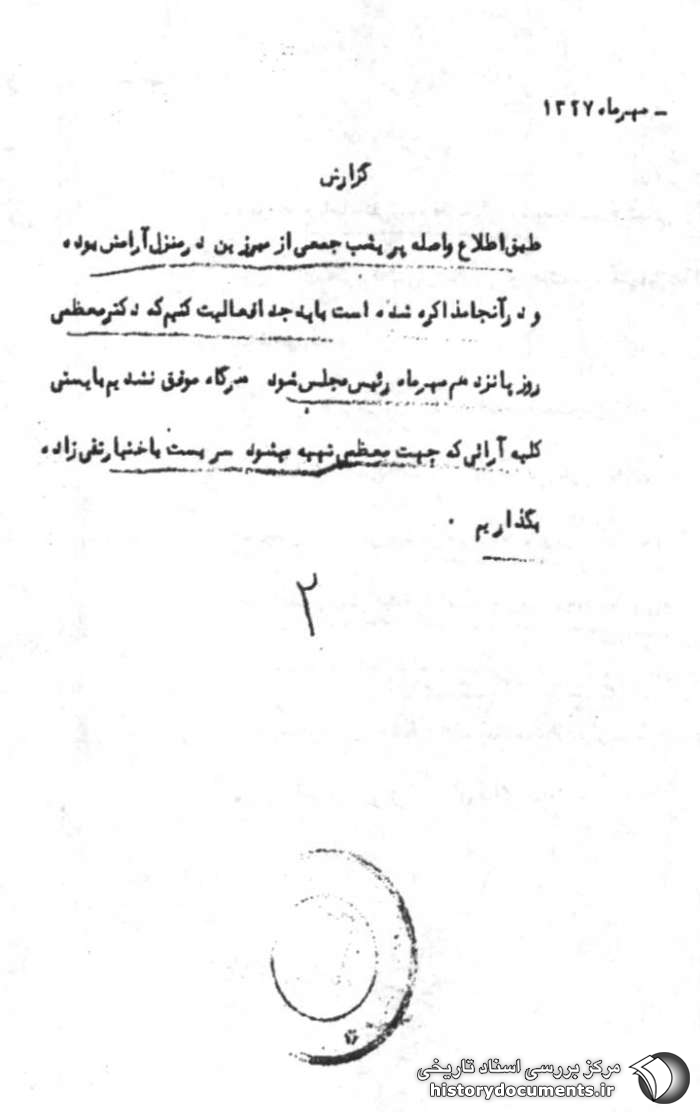 ـ مهرماه ۱۳۲۷
گزارش
طبق اطلاع واصله پریشب جمعی از مبرزین در منزل آرامش بوده
و در آنجا مذاکره شده است باید جدا فعالیت کنیم که دکتر معظمی
روز پانزدهم مهرماه رئیس مجلس شود هرگاه موفق نشدیم بایستی
کلیه آرائی که جهت معظمی تهیه میشود سربست باختیار تقی زاده
بگذاریم .
۲
مرکز بررسی اسناد تاریخی
historydocuments.ir